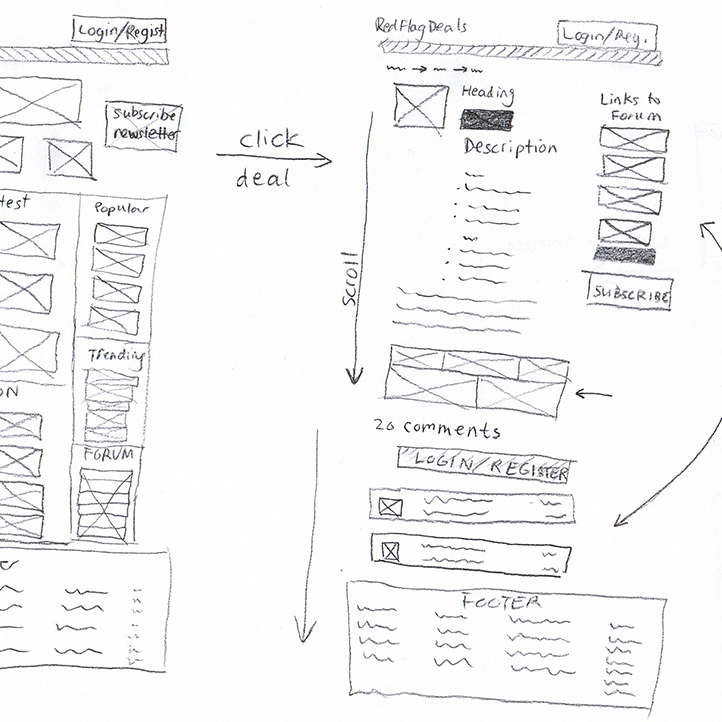 Login/Regist
subscribe
newsletter
test
Popular
Trending
ON
FORUM
er
click
deal
RedFlagDeals
Login/Reg.
Heading
Links to
Forum
Description
SUBSCRIBE
scroll
20 comments
LOGIN/REGISTER
FOOTER